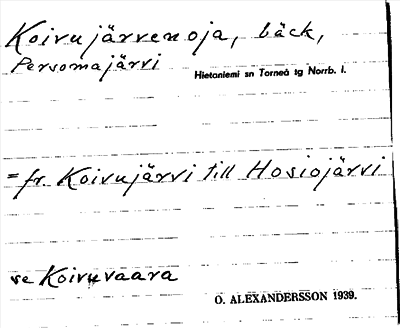 Koivujärvenoja, bäck,
Persomajärvi Hietaniemi sn Torneå tg Norrb. l.
= fr. Koivujärvi till Hosiojärvi
se Koiruvaara
O. ALEXANDERSSON 1939.